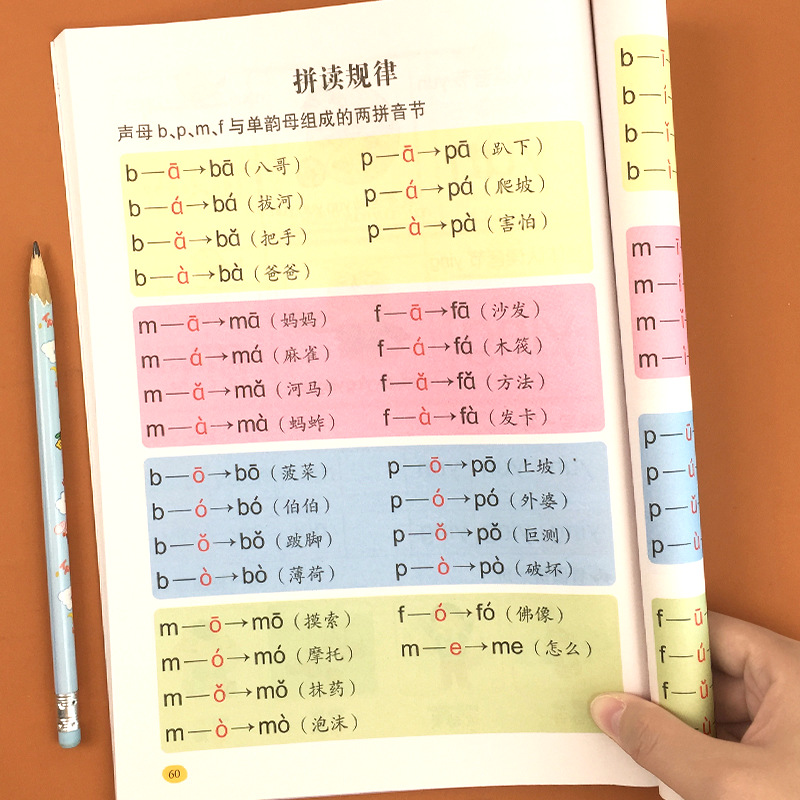 拼读规律
声母b、p、m、f与单韵母组成的两拼音节
b—ā→bā（八哥） p—ā→pā（趴下）
b—á→bá（拔河） p—á→pá（爬坡）
b—ǎ→bǎ（把手） p—à→pà（害怕）
b—à→bà（爸爸）
m—ā→mā（妈妈） f—ā→fā（沙发）
m—á→má（麻雀） f—á→fá（木筏）
m—ǎ→mǎ（河马） f—ǎ→fǎ（方法）
m—à→mà（蚂蚱） f—à→fà（发卡）
b—ō→bō（菠菜） p—ō→pō（上坡）
b—ó→bó（伯伯） p—ó→pó（外婆）
b—ǒ→bǒ（跛脚） p—ǒ→pǒ（叵测）
b—ò→bò（薄荷） p—ò→pò（破坏）
m—ō→mō（摸索） f—ó→fó（佛像）
m—ó→mó（摩托） m—e→me（怎么）
m—ǒ→mǒ（抹药）
m—ò→mò（泡沫）
60
b—ī
b—í
b—ǐ
b—ì
m—ī
m—í
m—ǐ
m—ì
p—ū
p—ú
p—ǔ
p—ù
f—ū
f—ú
f—ǔ
ù